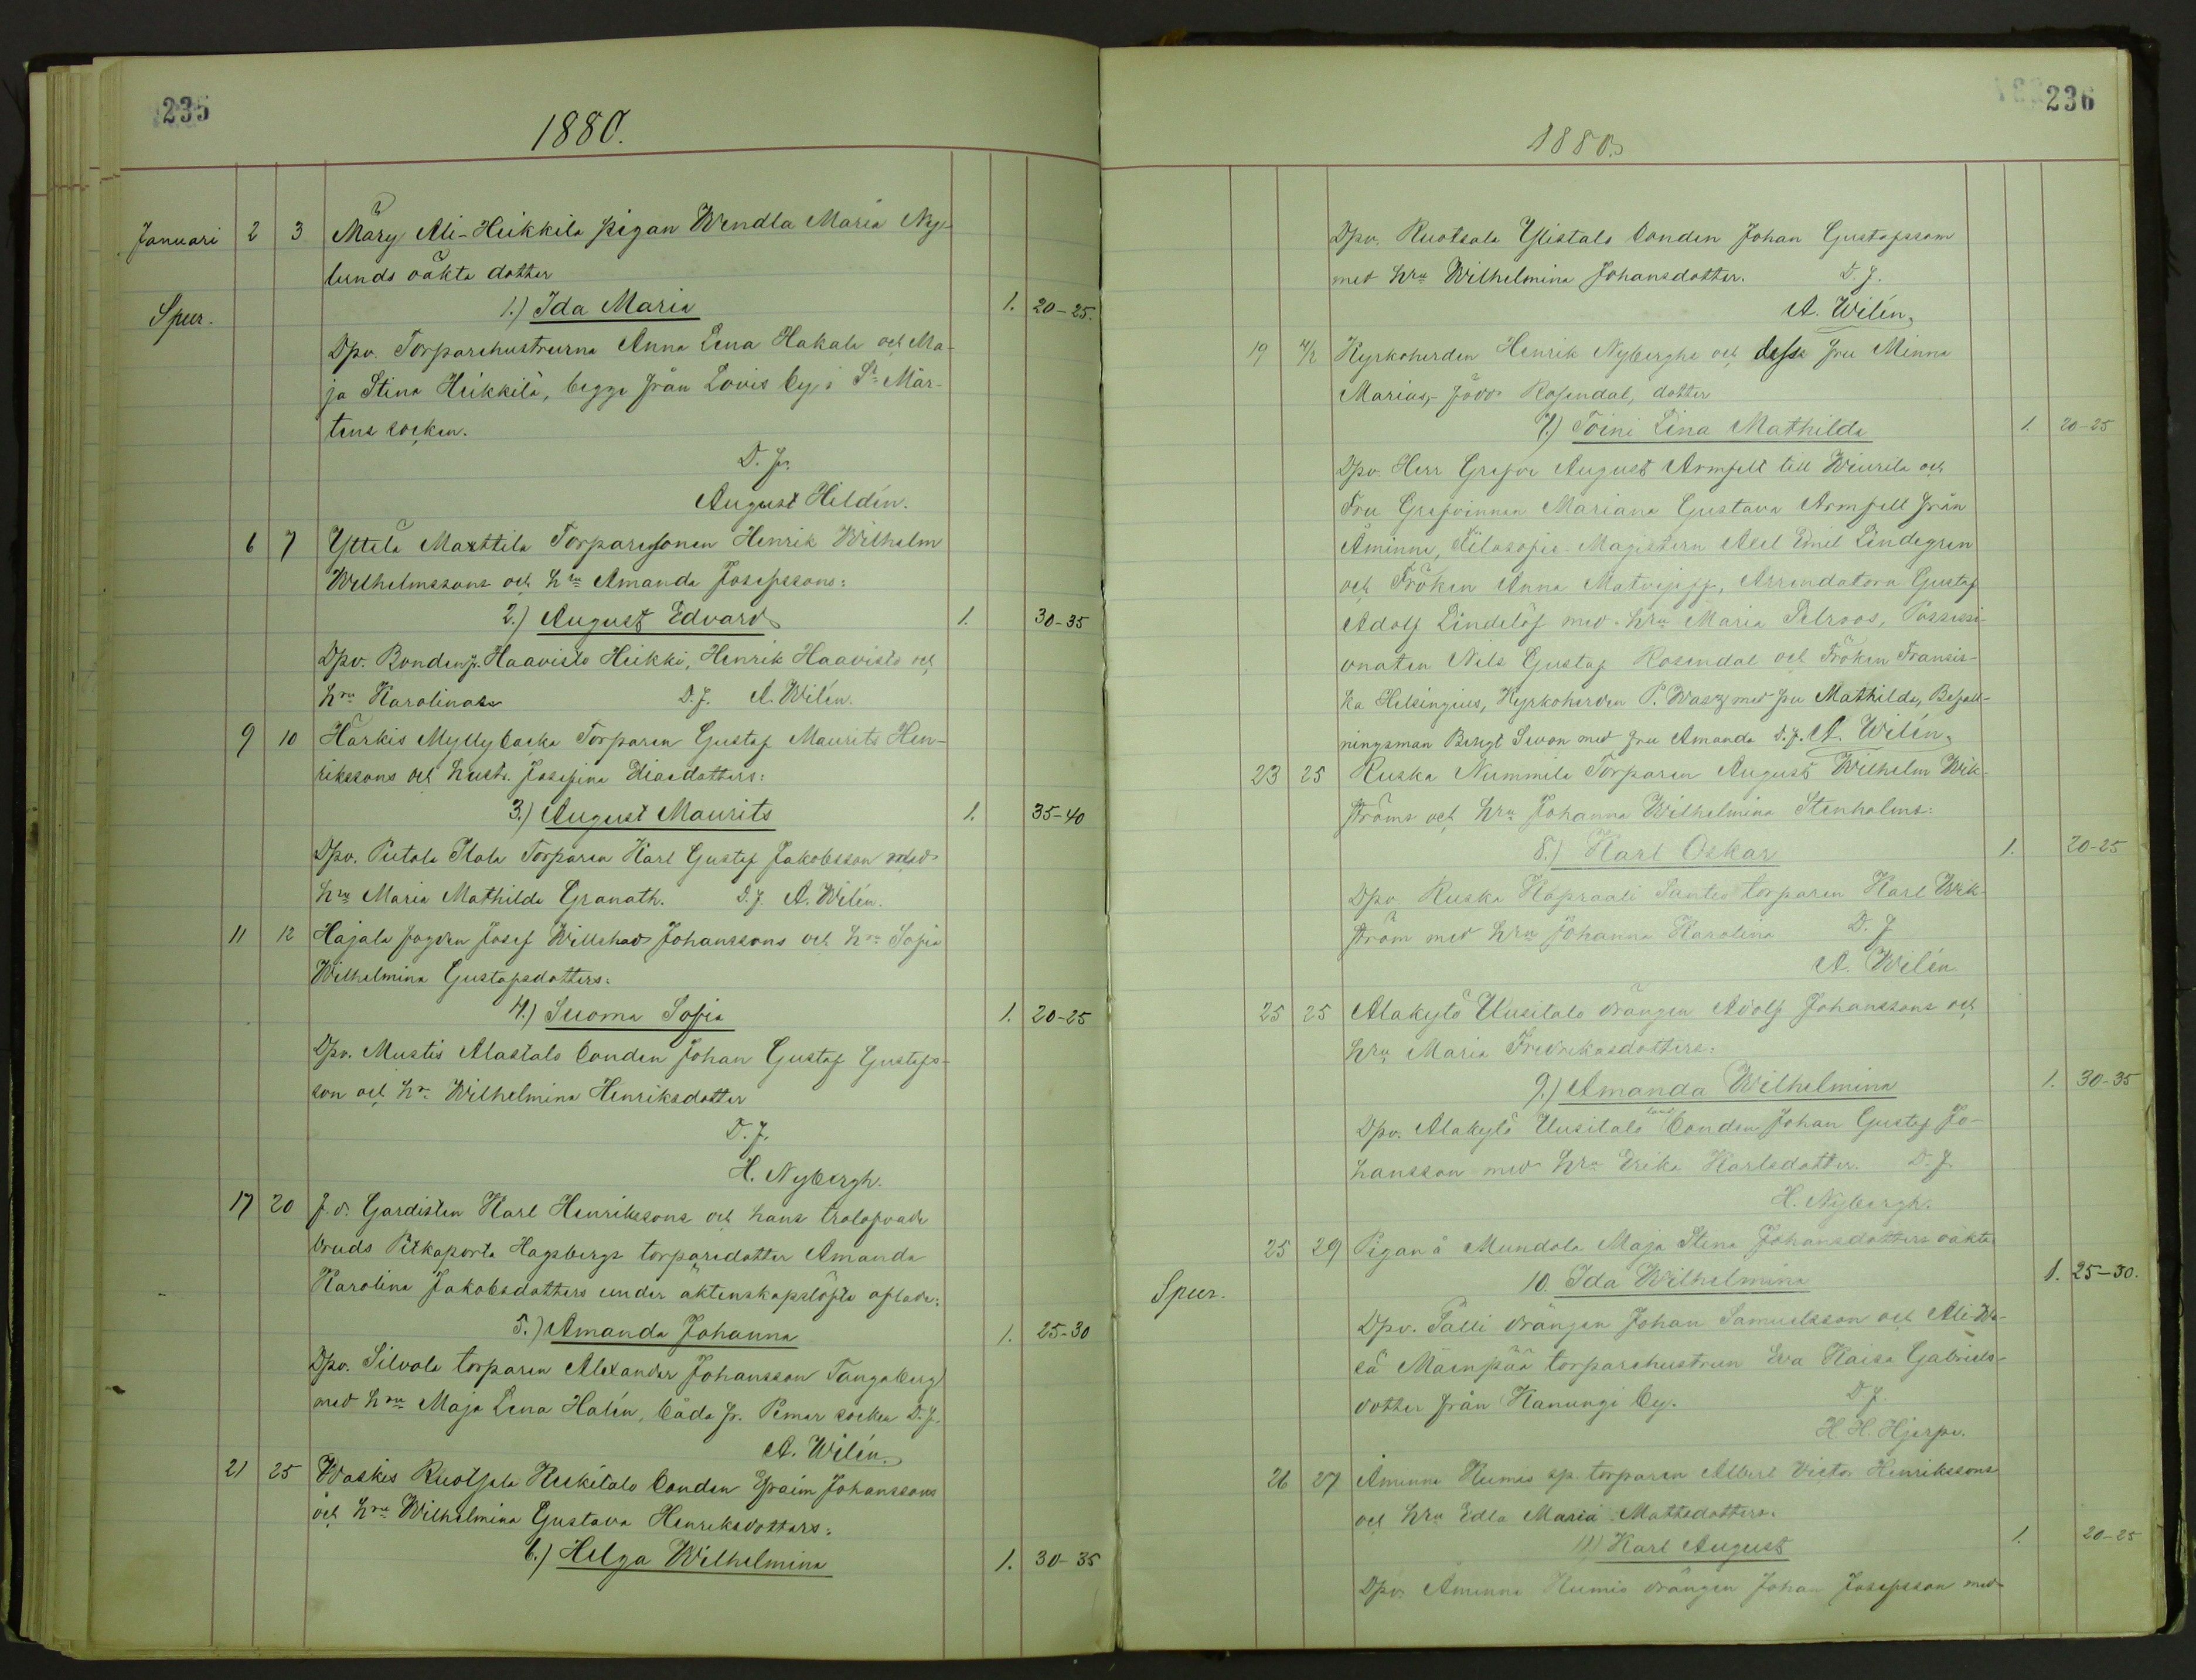 235
1880.
Januari 2 3 Märy Ali-Heikkilä pigan Wendla Maria Ny-
lunds oäkta dotter
Spur. 1.) Ida Maria 1. 20-25.
Dpv. Torparehustrurna Anna Lena Hakala och Ma-
ja Stina Heikkilä, begge från Lovis by i St Mår-
tens socken.
D. f.
August Heldén.
6 7 Yttelä Marttila Torparesonen Henrik Wilhelm
Wilhelmssons och hru Amanda Josefssons:
2.) August Edvard 1. 30-35
Dpv. Bonden fr. Haavisto Heikki, Henrik Haavisto och
hru Karolina D. f. A. Wilén.
9 10 Härkis Myllybacka Torparen Gustaf Maurits Hen-
rikssons och hustr. Josefina Eliasdotters:
3.) August Maurits 1. 35-40
Dpv. Putola Itala Torparen Karl Gustaf Jakobsson med
hru Maria Mathilda Granath. D. f. A. Wilén.
11 12 Hajala fogden Josef Willehad Johanssons och hru Sofia
Wilhelmina Gustafsdotters:
4.) Suoma Sofia 1. 20-25
Dpv. Mustis Alastalo bonden Johan Gustaf Gustafs-
son och hr. Wilhelmina Henriksdotter
D. f.
H. Nybergh.
17 20 f. d. Gardisten Karl Henrikssons och hans trolofvade
bruds Pitkaporta Hagsbergs torparedotter Amanda
Karolina Jakobsdotters under äktenskapslöfte aflade:
5.) Amanda Johanna 1. 25-30
Dpv. Silvola torparen Alexander Johansson Tangaberg
med hru Maja Lena Halén, båda fr. Pemar socken D. f.
A. Wilén.
21 25 Waskis Ruotsala Heikilalo bonden Efraim Johanssons
och hru Wilhelmina Gustava Henriksdotters:
6.) Helga Wilhelmina 1. 30-35
236
1880.
Dpv. Ruotsala Ylistalo bonden Johan Gustafsson
med hru Wilhelmina Johansdotter. D. f.
A. Wilén.
19 4/2 Kyrkoherden Henrik Nyberghs och dess fru Minna
Marias, född Rosendal, dotter
7.) Toini Lina Mathilda 1. 20-25
Dpv. Herr Grefve August Armfelt till Wiurila och
Fru Grefvinnan Mariana Gustava Armfelt från
Åminne, Filosofie Magistern Axel Emil Lindegren
och Fröken Anna Matvejeff, Arrendatorn Gustaf
Adolf Lindelöf med hru Maria Selroos, Possessi-
onaten Nils Gustaf Rosendal och Fröken Fransis-
ka Helsingius, Kyrkoherden P. Wasz med fru Mathilda, Befall-
ningsman Bengt Sevon med fru Amanda D. f. A. Wilén.
23 25 Ruska Nummila Torparen August Wilhelm Wik-
ströms och hru Johanna Wilhelmina Stenholms:
8.) Karl Oskar 1. 20-25
Dpv. Ruska Kapraali Santeo torparen Karl Wik-
ström med hru Johanna Karolina D. f
A. Wilén
25 25 Alakylö Uusitalo drängen Adolf Johanssons och
hru Maria Fredrikasdotters:
9.) Amanda Wilhelmina 1. 30-35
Dpv. Alakylö Uusitalo bonden Johan Gustaf Jo-
hansson med hru Erika Karlsdotter. D. f.
H. Nybergh.
25 29 Pigan å Mundola Maja Stina Johansdotters oäkta
Spur. 10. Ida Wilhelmina 1. 25-30.
Dpv. Pälli drängen Johan Samuelsson och Ali-We-
sä Mäenpää torparehustrun Eva Kaisa Gabriels-
dotter från Kanungi by. D. f.
H H. Hjerpe.
26 27 Åminne Kumio sp. torparen Albert Victor Henrikssons
och hru Edla Maria Mattsdotters.
11) Karl August 1. 20-25
Dpv. Åminne Kumio drängen Johan Josefsson med